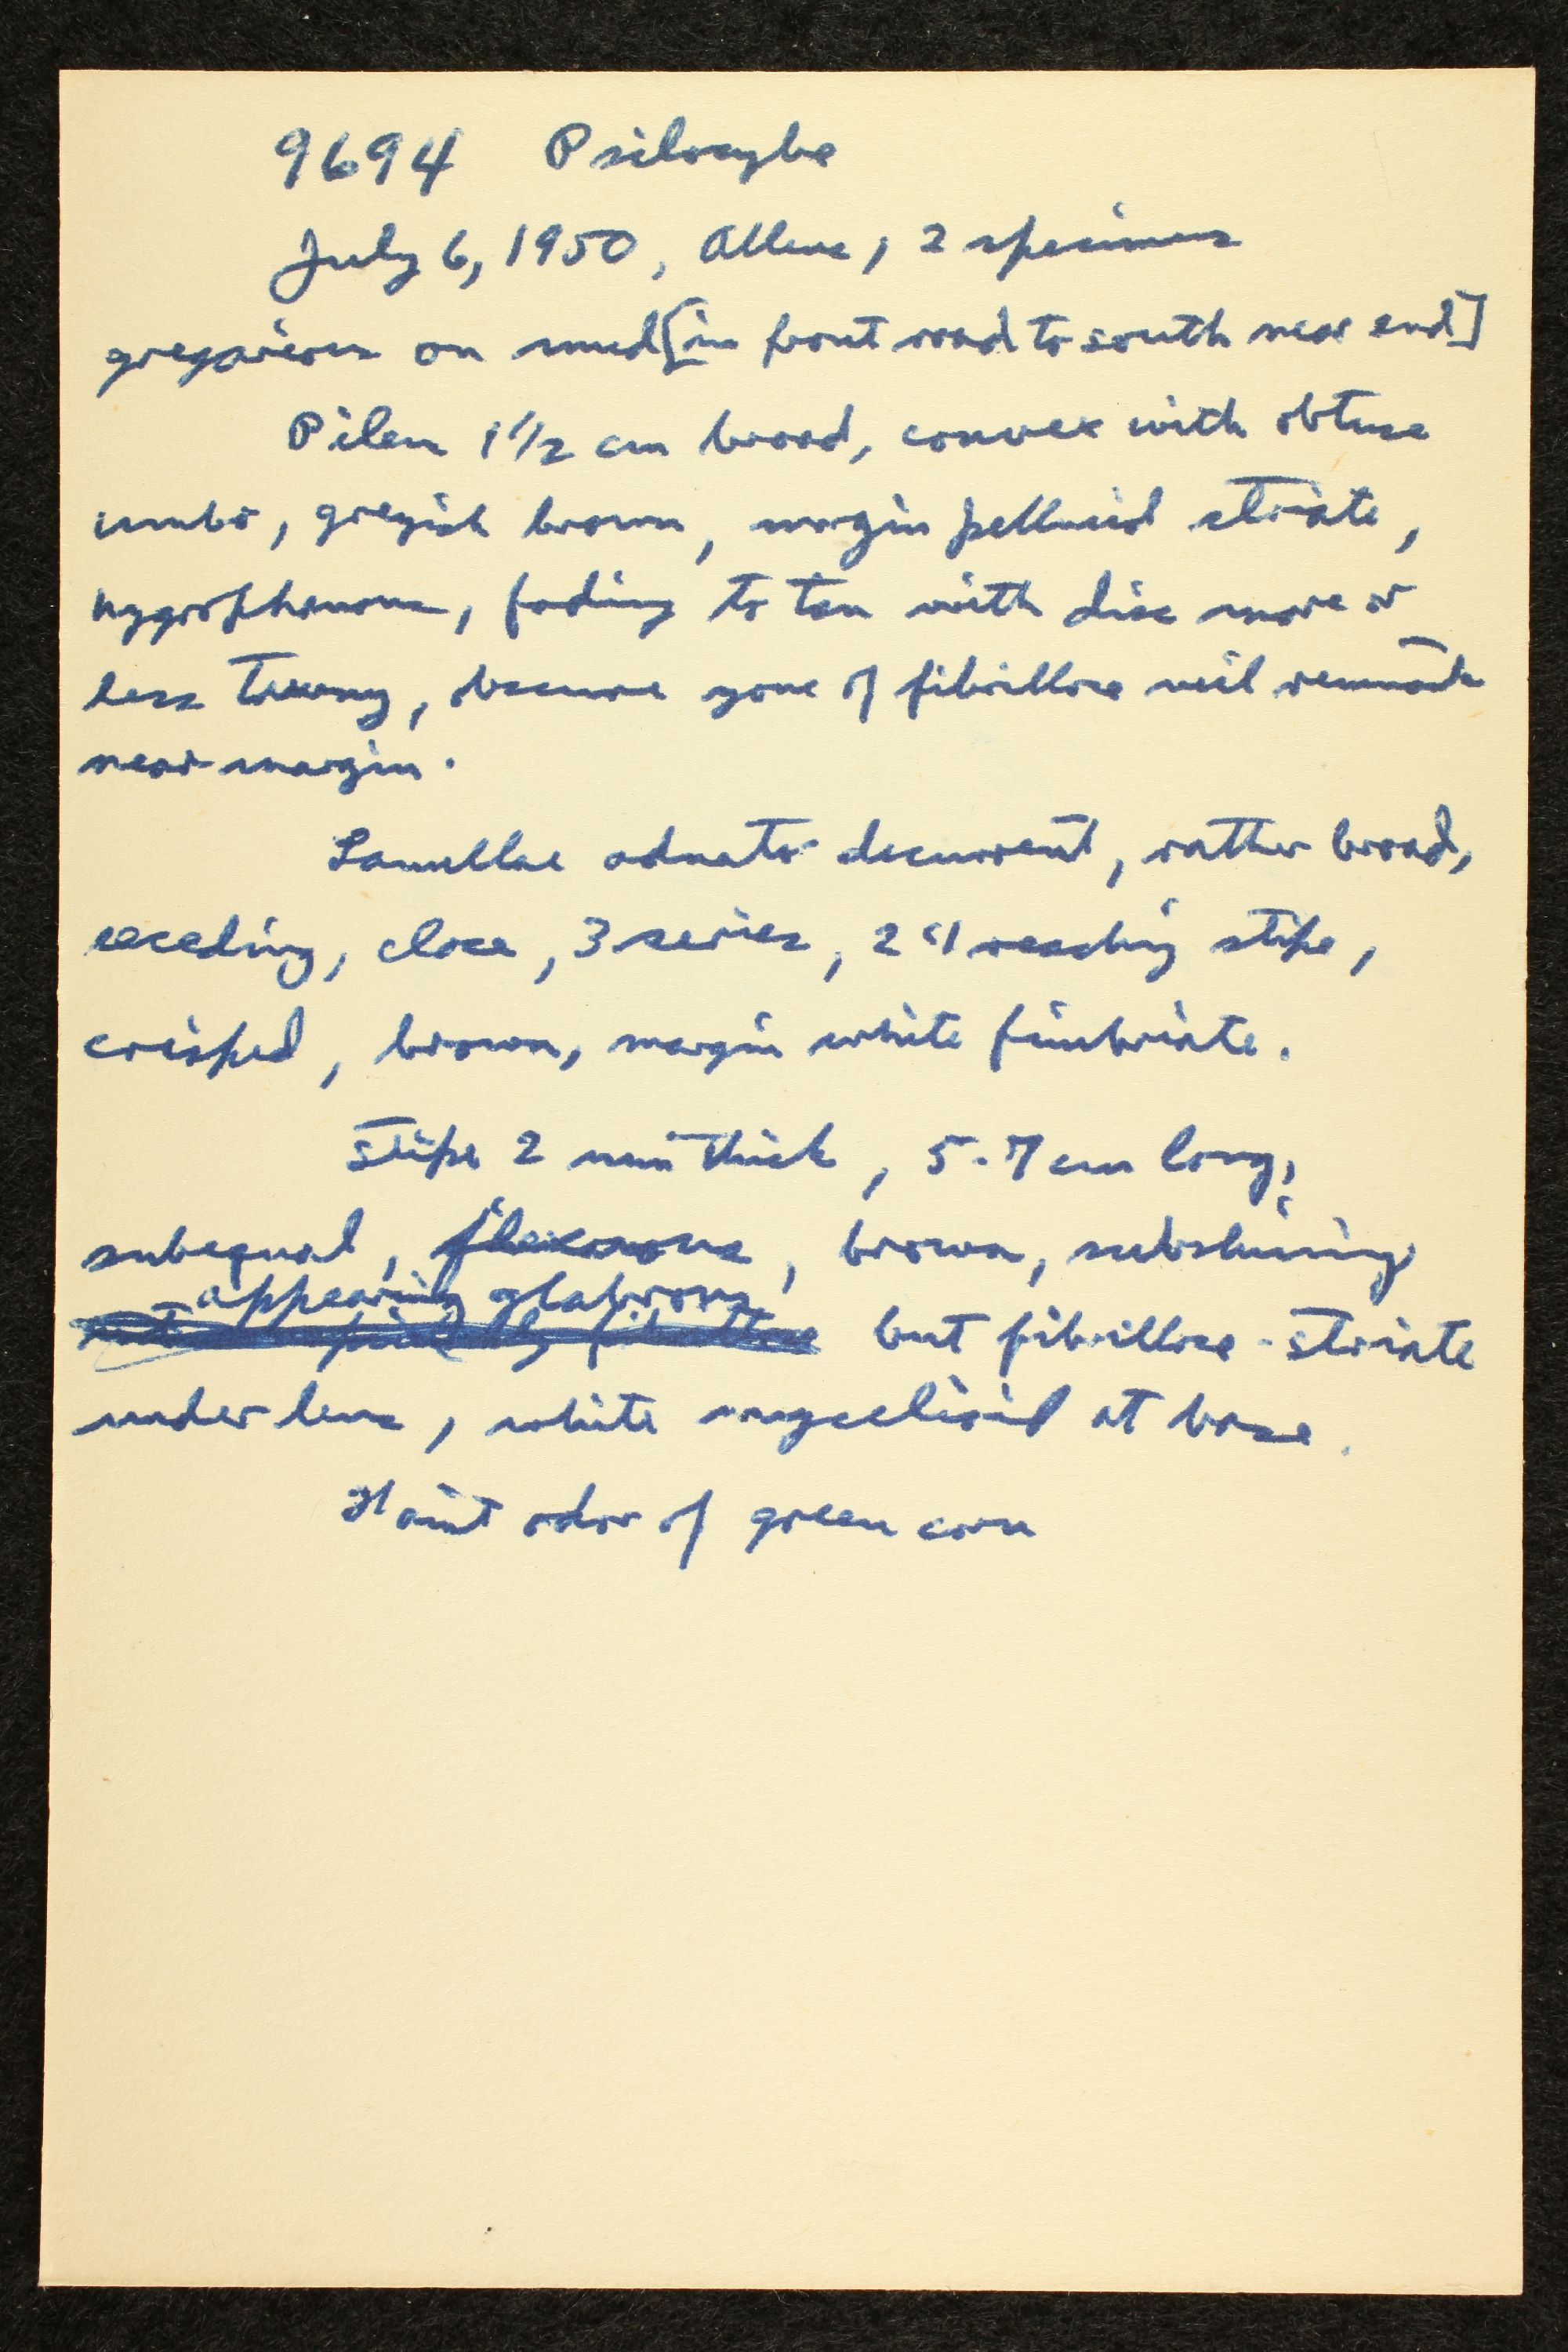 9694 Psilocybe
July 6, 1950, Allens, 2 specimens
gregarious on mud [in front road to south near end]
Pileus 1 1/2 cm broad, convex with obtuse
umbo, greyish brown, margin pellucid striate,
hygrophanous, fading to tan with disc more or
less tawny, obscure zone of fibrillose veil remnants
near margin.
Lamellae adnate decurrent, rather broad,
seceding, close, 3 series, reaching stipe,
crisped, brown, margin white fimbriate.
Stipe 2 mm thick, 5-7 cm long,
subequal, flexuous, brown, subshining,
appearing glabrous
but fibrillose-striate
under lens, white mycelioid at base.
Faint odor of green corn